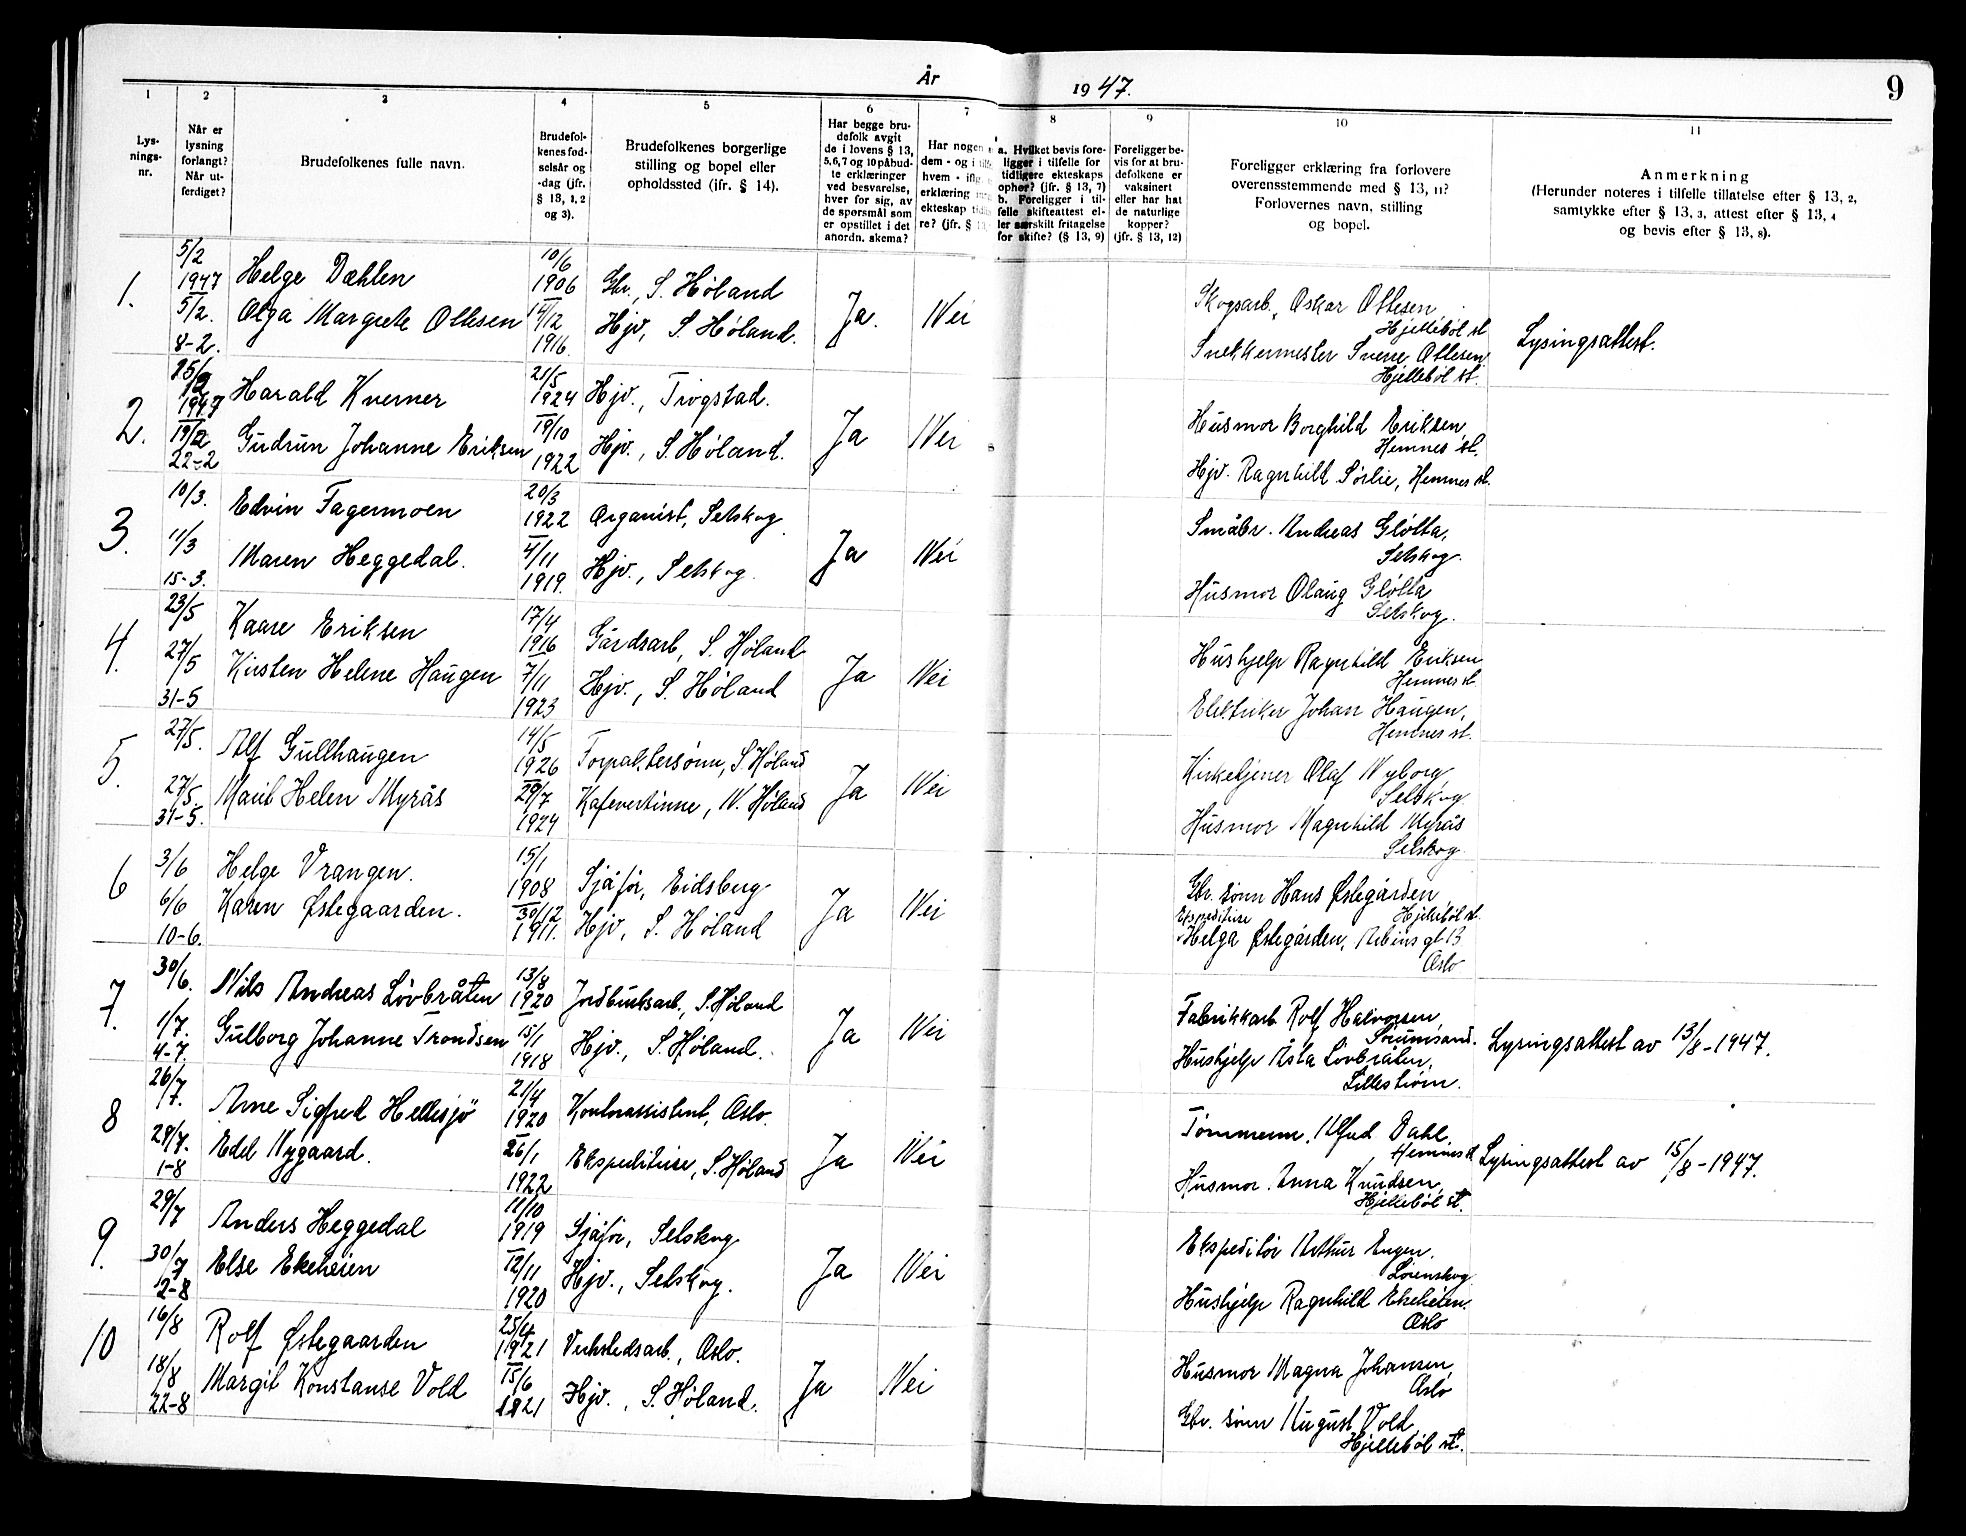 År 1947.
9
1 2 3 4 5 6 7 8 9 10 11
Lys-
nings-
nr.
Når er
lysning
forlangt?
Når ut-
ferdiget?
Brudefolkenes fulle navn.
Brudefol-
kenes fød-
selsår og
-dag (jfr.
§ 13, 1, 2
og 3).
Brudefolkenes borgerlige
stilling og bopel eller
opholdssted (jfr. § 14).
Har begge bru-
defolk avgit
de i lovens § 13,
5, 6, 7 og 10 påbud-
te erklæringer
ved besvarelse,
hver for sig, av
de spørsmål som
er opstillet i det
anordn. skema?
Har nogen
dem - og i
hvem - iflg.
erklæring
ekteskap
re? (jfr. §
a. Hvilket bevis fore-
ligger i tilfelle for
tidligere ekteskaps
ophør? (jfr. § 13, 7)
b. Foreligger i til-
felle skifteattest el-
ler særskilt fritagelse
for skifte? (§ 13, 9)
Foreligger be-
vis for at bru-
defolkene er
vaksinert
eller har hat
de naturlige
kopper?
(jfr. § 13, 12)
Foreligger erklæring fra forlovere
overensstemmende med § 13, 11?
Forlovernes navn, stilling
og bopel.
Anmerkning
(Herunder noteres i tilfelle tillatelse efter § 13, 2,
samtykke efter § 13, 3, attest efter § 13, 4
og bevis efter § 13, 8).
1. 5/2 1947 5/2. 8-2.
Helge Dæhlen 10/6 1906 Gbr., S. Høland
Olga Margrete Ottesen 14/12 1916. Hjv, S. Høland.
Ja. Nei
Skogsarb. Oskar Ottesen
Hjellebøl st
Snekkermester Sverre Ottesen
Hjellebøl st.
Lysingsattest.
2. 1947 19/2 22-2
Harald Kverner 21/5 1924 Hjv., Trøgstad.
Gudrun Johanne Eriksen 19/10 1922 Hjv., S. Høland.
Ja Nei
Husmor Borghild Eriksen
Hemnes st.
Hjv. Ragnhild Sørlie, Hemnes st.
3. 10/3. 11/3 15-3.
Edvin Fagermoen 20/3 1922 Organist, Setskog
Maren Heggedal. 4/11 1919. Hjv., Setskog.
Ja Nei
Småbr. Andreas Gløtta,
Setskog.
Husmor Olaug Gløtta
Setskog.
4. 23/5 27/5 31-5
Kaare Eriksen 17/4 1916 Gårdsarb, S. Høland
Kirsten Helene Haugen 7/11 1923 Hjv., S. Høland
Ja Nei
Hushjelp Ragnhild Eriksen
Hemnes st.
Elektriker Johan Haugen,
Hemnes st.
5. 27/5. 27/5. 31-5.
Alf Gullhaugen 14/5 1926 Forpaktersønn, S. Høland
Marit Helen Myrås 29/7 1924 Kafevertinne, N. Høland
Ja Nei
Kirketjener Olaf Nyborg,
Setskog
Husmor Magnhild Myrås
Setskog.
6 3/6 6/6 10-6.
Helge Vrangen. 15/1 1908 Sjåfør, Eidsberg
Karen Østegaarden. 30/12 1911. Hjv, S. Høland
Ja Nei
Gbr. sønn Hans Østegården,
Hjellebøl st.
Ekspeditrise
Helga Østegården,
Oslo
7. 30/6. 1/7. 4-7.
Nils Andreas Løvbråten 13/8 1920 Jordbruksarb., S. Høland
Gulborg Johanne Trondsen 15/1 1918 Hjv., S. Høland.
Ja Nei
Fabrikkarb. Rolf Halvorsen,
Sørumsand.
Hushjelp Åsta Løvbråten,
Lillestrøm.
Lysingsattest av 13/8-1947.
8 26/7. 29/7. 1-8
Arne Sigfred Hellesjø 21/4 1920 Kontorassistent, Oslo.
Edd Nygaard. 26/1 1922 Ekspeditrise, S. Høland
Ja Nei
Tømmerm. Alfred Dahl.
Hemnes st
Husmor. Anna Knudsen,
Hjellebøl st.
Lysingsattest av 15/8-1947.
9. 29/7 30/7 2-8
Anders Heggedal 11/10 1919 Sjåfør, Setskog
Else Ekeheien 12/11 1920 Hjv., Setskog.
Ja Nei
Ekspeditør Arthur Engen.
Lørenskog
Hushjelp Ragnhild Ekeheien.
Oslo
10 16/8 18/8 22-8
Rolf Østegaarden 25/4 1921 Verkstedsarb., Oslo.
Margit Konstanse Vold 15/6 1921 Hjv., S. Høland.
Ja Nei
Husmor Magna Johansen,
Oslo
Gbr. sønn August Vold,
Hjellebøl st.